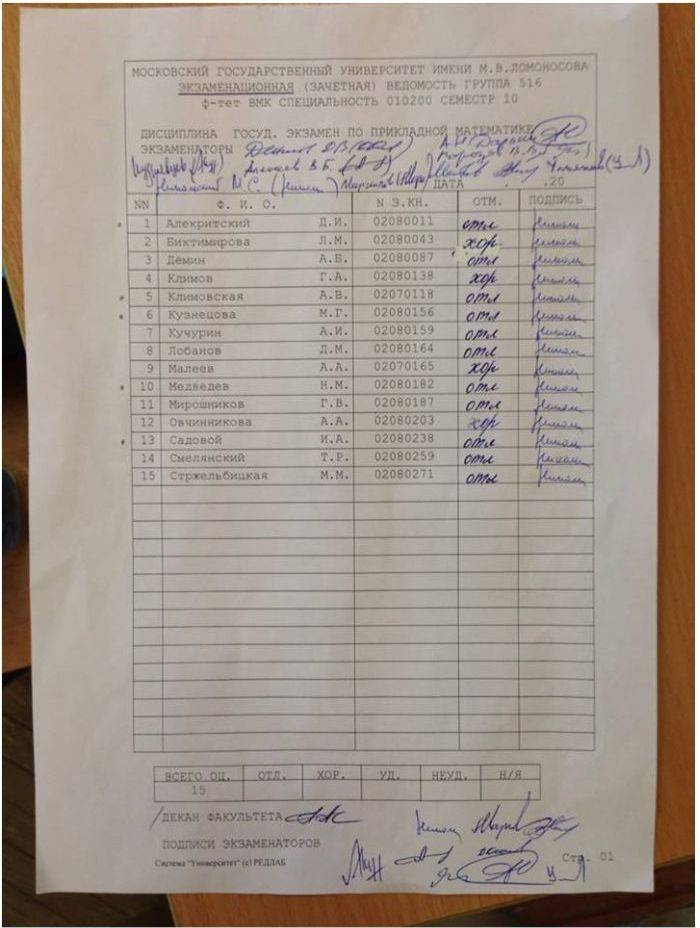 МОСКОВСКИЙ ГОСУДАРСТВЕННЫЙ УНИВЕРСИТЕТ ИМЕНИ М.В.ЛОМОНОСОВА
ЭКЗАМЕНАЦИОННАЯ (ЗАЧЕТНАЯ) ВЕДОМОСТЬ ГРУППА 516
ф-тет ВМК СПЕЦИАЛЬНОСТЬ 010200 СЕМЕСТР 10
ДИСЦИПЛИНА ГОСУД. ЭКЗАМЕН ПО ПРИКЛАДНОЙ МАТЕМАТИКЕ
ЭКЗАМЕНАТОРЫ
В.Б.
М.С. ДАТА . .20
NN Ф. И. О. N З.КН. ОТМ. ПОДПИСЬ
1 Алекритский Д.И. 02080011 отл
2 Биктимирова Л.М. 02080043 хор
3 Дёмин А.Б. 02080087 отл
4 Климов Г.А. 02080138 хор
5 Климовская А.В. 02070118 отл
6 Кузнецова М.Г. 02080156 отл
7 Кучурин А.И. 02080159 отл
8 Лобанов Д.М. 02080164 отл
9 Малеев А.А. 02070165 хор
10 Медведев Н.М. 02080182 отл
11 Мирошников Г.В. 02080187 отл
12 Овчинникова А.А. 02080203 хор
13 Садовой И.А. 02080238 отл
14 Смелянский Т.Р. 02080259 отл
15 Стржельбицкая М.М. 02080271 отл
ВСЕГО ОЦ. ОТЛ. ХОР. УД. НЕУД. Н/Я
15
/ДЕКАН ФАКУЛЬТЕТА
ПОДПИСИ ЭКЗАМЕНАТОРОВ
Система "Университет" (c) РЕДЛАБ Стр. 01